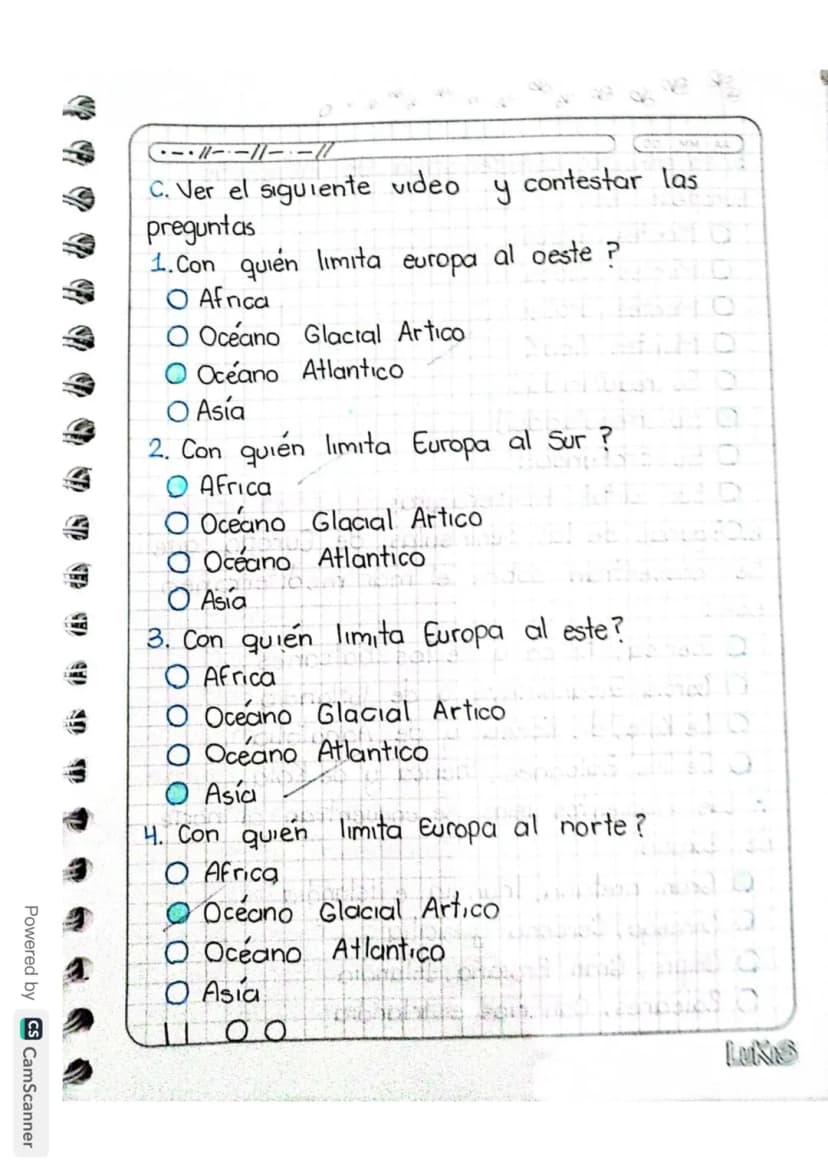 C. Ver el siguiente video y contestar las
preguntas
1. Con quién limita europa al oeste ?
Africa
Océano Glacial Artico
Océano Atlantico
Asía
2. Con quién limita Europa al Sur ?
Africa
Océano Glacial Artico
Océano Atlantico
Asía
3. Con quién limita Europa al este?
Africa
Océano Glacial Artico
Océano Atlantico
Asía
4. Con quién limita Europa al norte ?
Africa
Océano Glacial Artico
Océano Atlantico
Asía
LUKAS
Powered by CS CamScanner